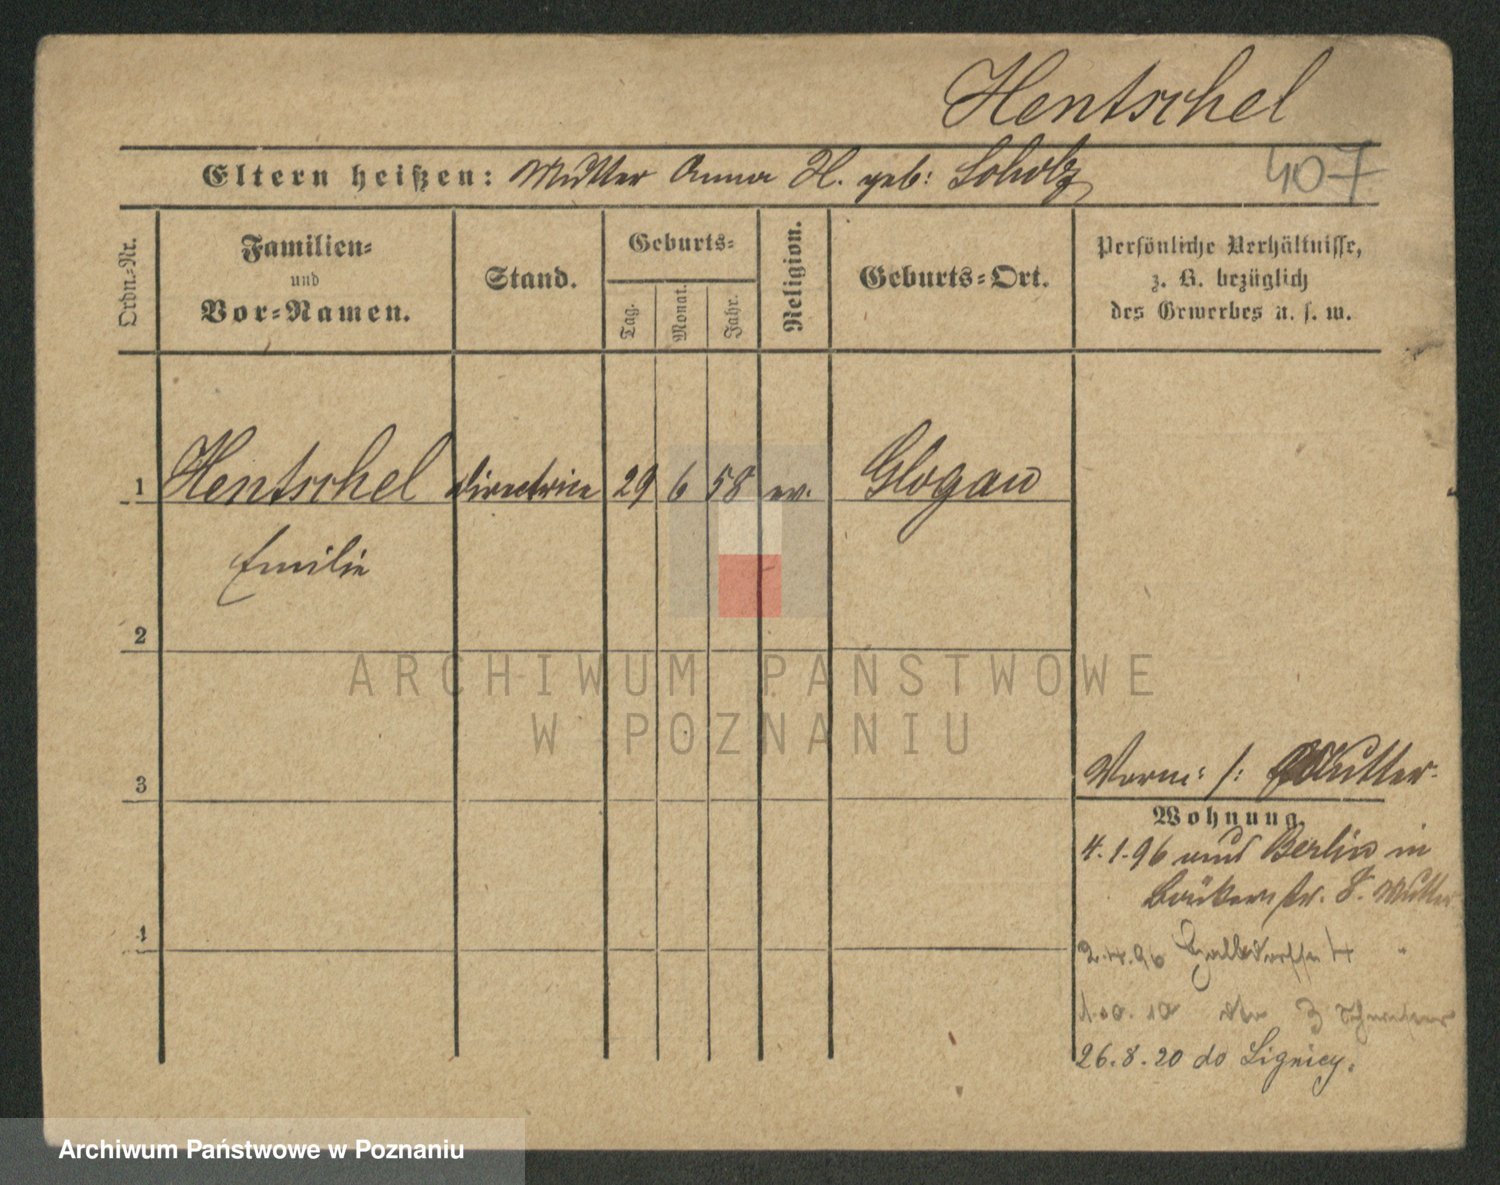 Hentschel
Eltern heißen: Mutter Anna H. geb: 407
Ordn.-Nr.
Familien-
und
Vor-Namen.
Stand.
Geburts-
Tag.
Monat.
Jahr.
Religion.
Geburts-Ort.
Persönliche Verhältnisse,
z. B. bezüglich
des Gewerbes u. s. w.
1 Hentschel directrice 29 6 58 ev. Glogau
Emilie
2
ARCHIWUM PAŃSTWOWE
W POZNANIU
3
Mutter
Wohnung.
4.1.96 aus Berlin in
8. Mutter
4
2.4.96 4 "
10 3
26.8.20 do Lignicy.
Archiwum Państwowe w Poznaniu